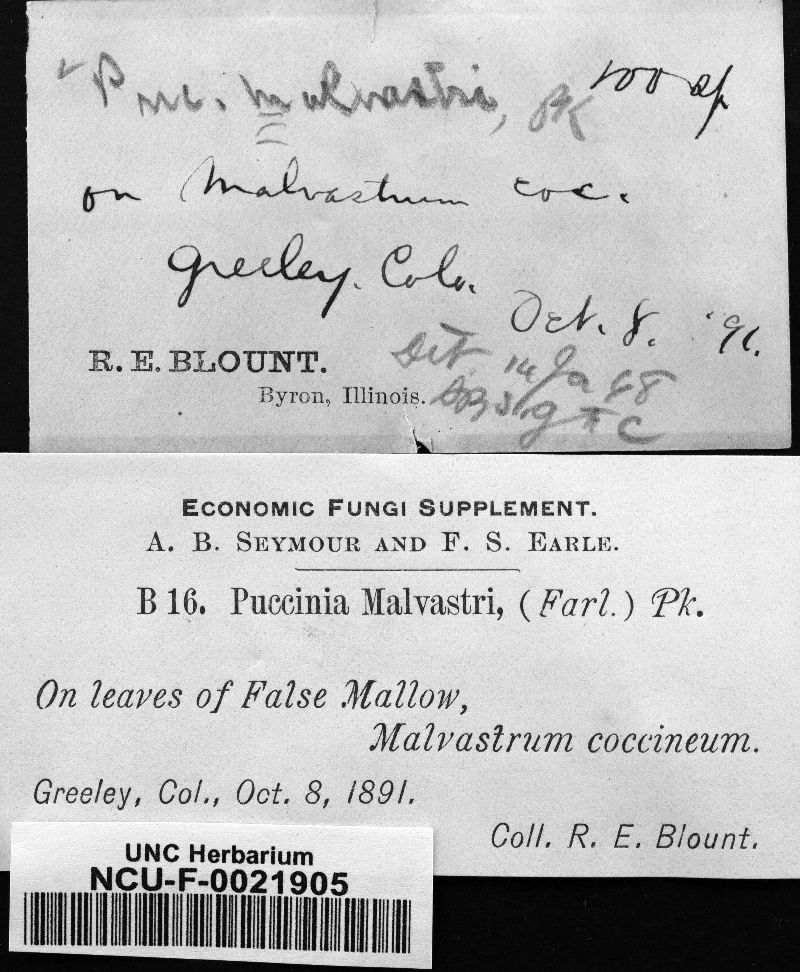 Puc. Malvastri, Pk 100 sp
on Malvastrum coc.
Greeley. Colo.
Oct. 8. '91.
R. E. BLOUNT.
Byron, Illinois.
Det
ECONOMIC FUNGI SUPPLEMENT.
A. B. SEYMOUR AND F. S. EARLE.
B 16. Puccinia Malvastri, (Farl.) Pk.
On leaves of False Mallow,
Malvastrum coccineum.
Greeley, Col., Oct. 8, 1891.
Coll. R. E. Blount.
UNC Herbarium
NCU-F-0021905